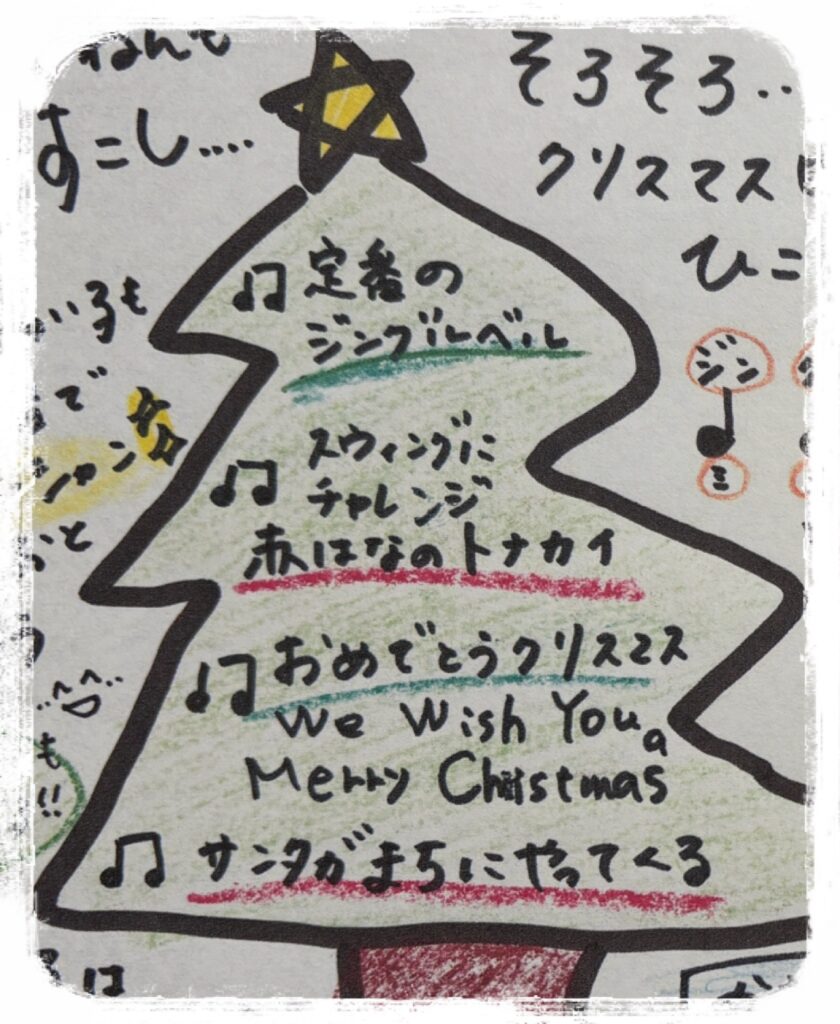 すこし‥‥
そろそろ‥
クリスマス
ひこ
定番の
ジングルベル
ジン
ミ
スウィングに
チャレンジ
赤はなのトナカイ
おめでとうクリスマス
We Wish You a
Merry Christmas
も!!
サンタがまちにやってくる